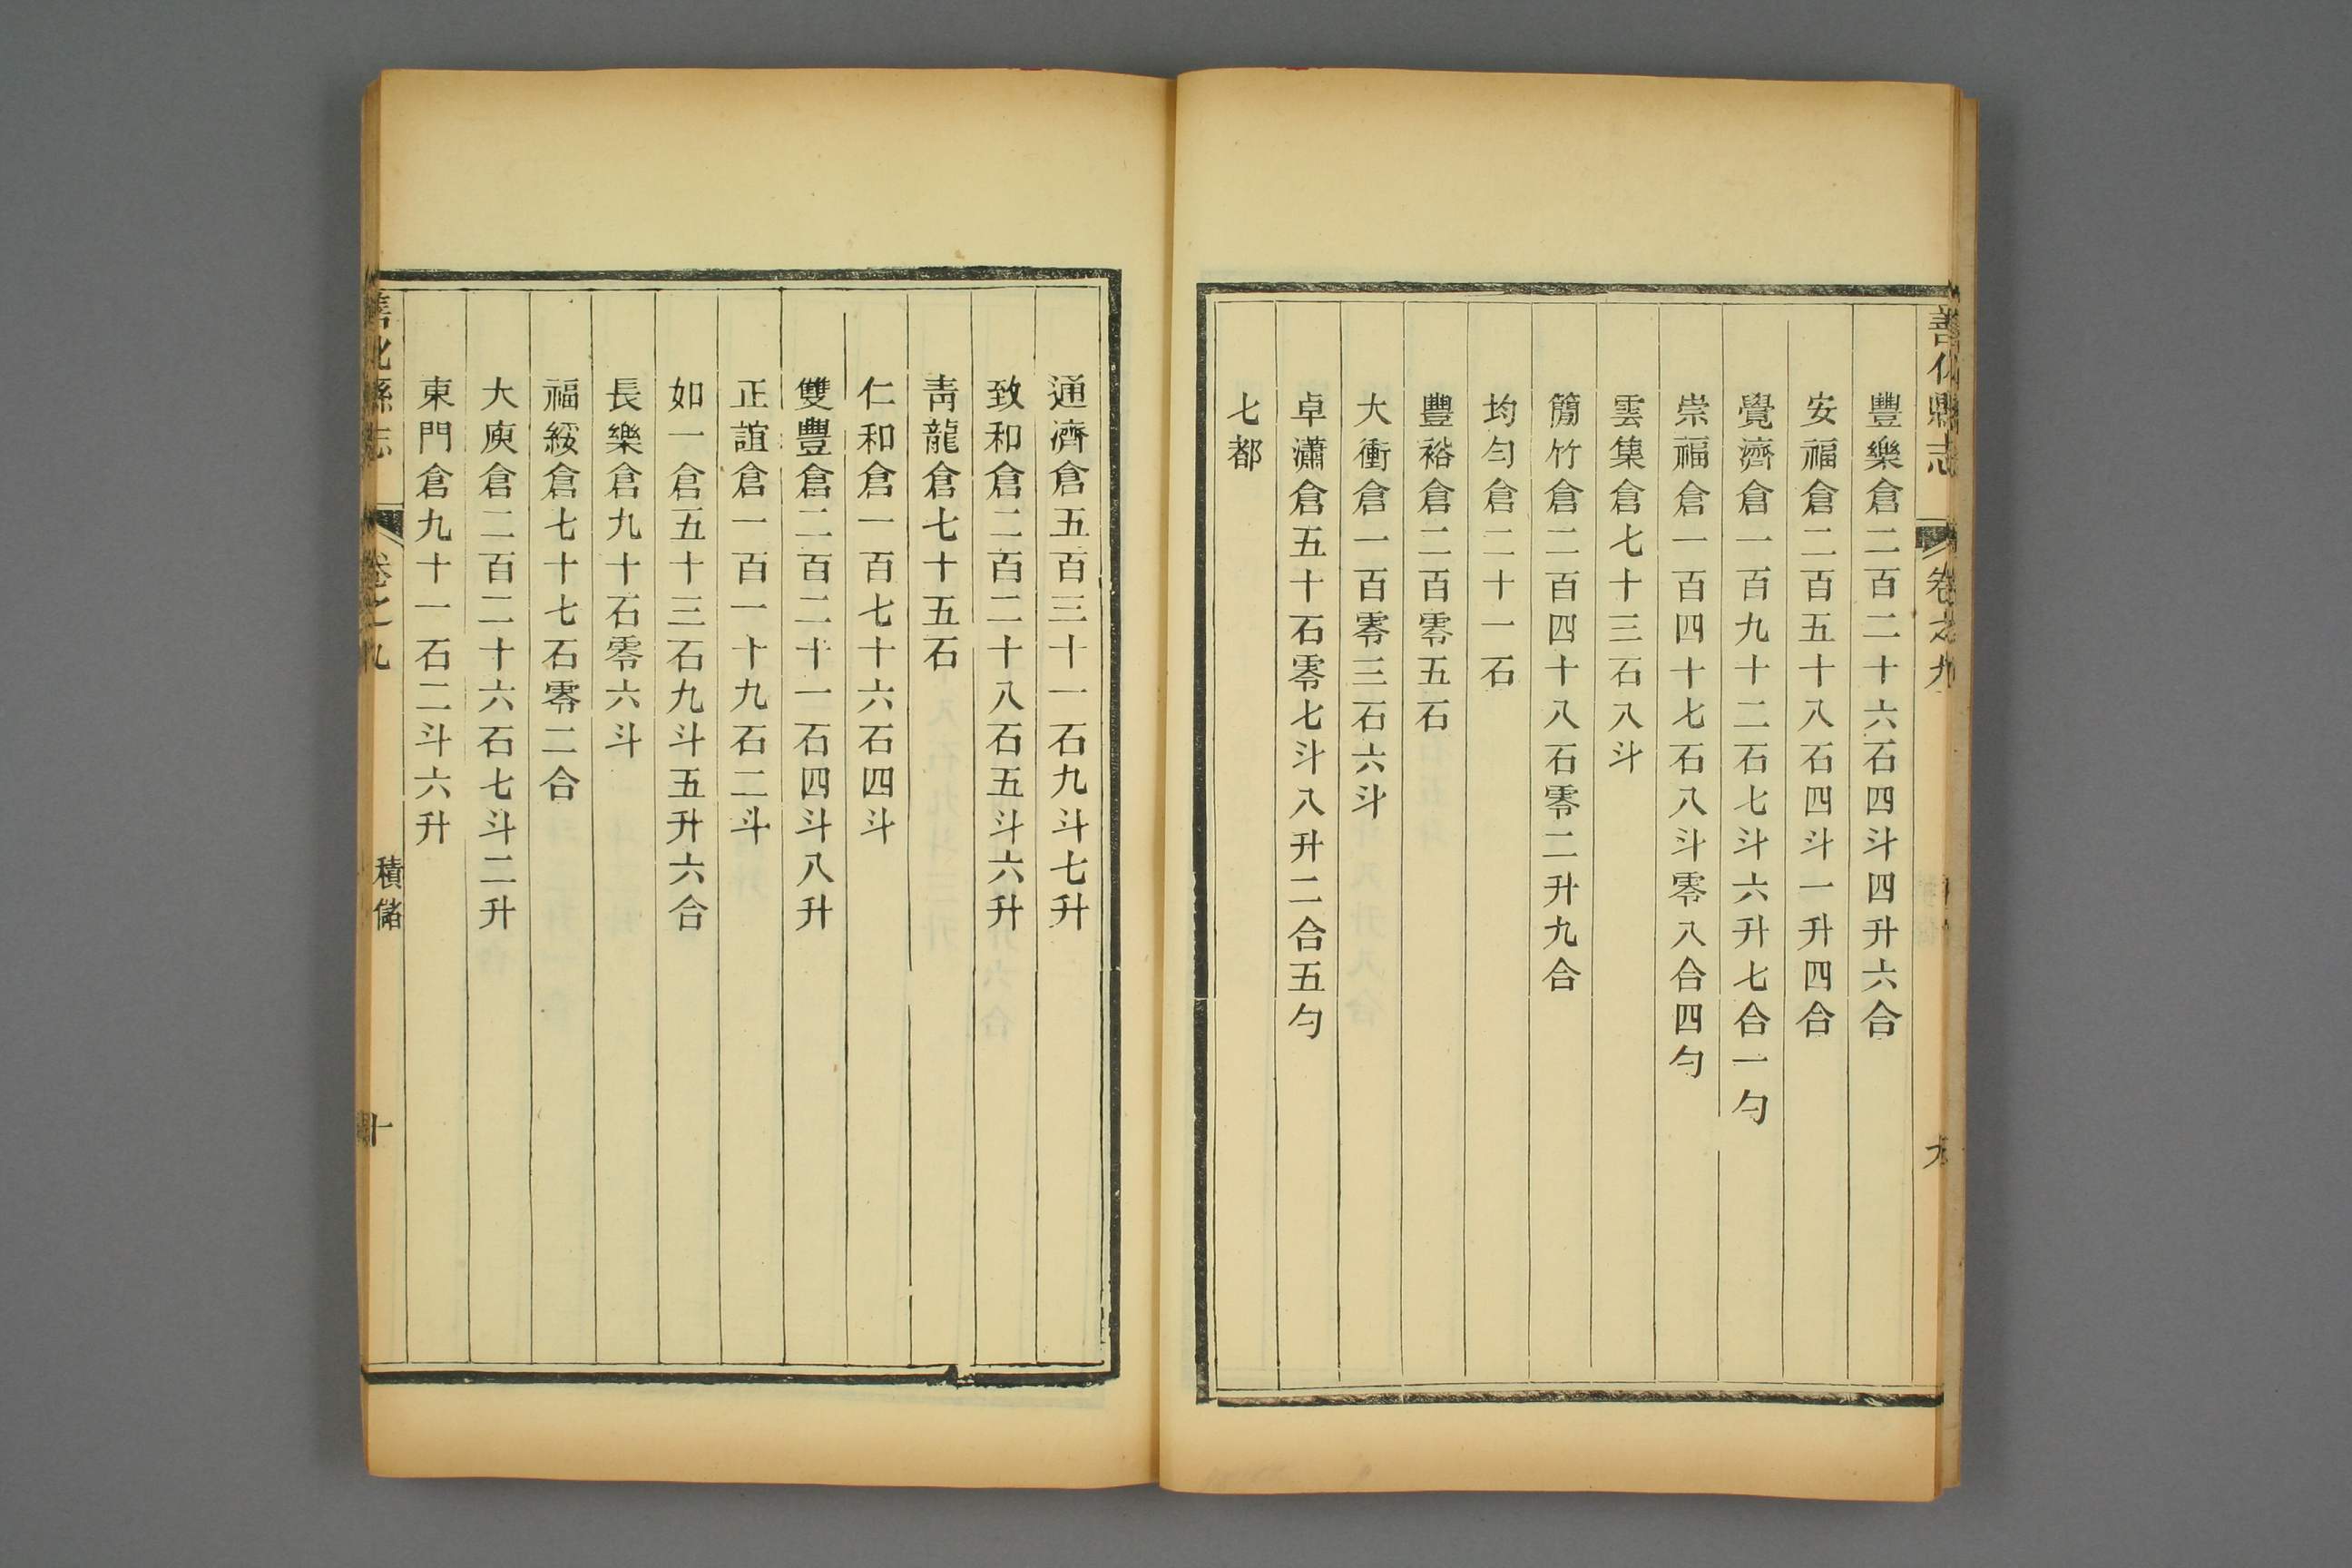 善化縣志 卷之九
豐樂倉二百二十六石四斗四升六合
安福倉二百五十八石四斗一升四合
覺濟倉一百九十二石七斗六升七合一勺
崇福倉一百四十七石八斗零八合四勺
雲集倉七十三石八斗
簡竹倉二百四十八石零二升九合
均勻倉二十一石
豐裕倉二百零五石
大衝倉一百零三石六斗
卓瀟倉五十石零七斗八升二合五勺
七都
通濟倉五百三十一石九斗七升
致和倉二百二十八石五斗六升
靑龍倉七十五石
仁和倉一百七十六石四斗
雙豐倉二百二十一石四斗八升
正誼倉一百一十九石二斗
如一倉五十三石九斗五升六合
長樂倉九十石零六斗
福綏倉七十七石零二合
大庾倉二百二十六石七斗二升
東門倉九十一石二斗六升
善化縣志 卷之九 積儲 十